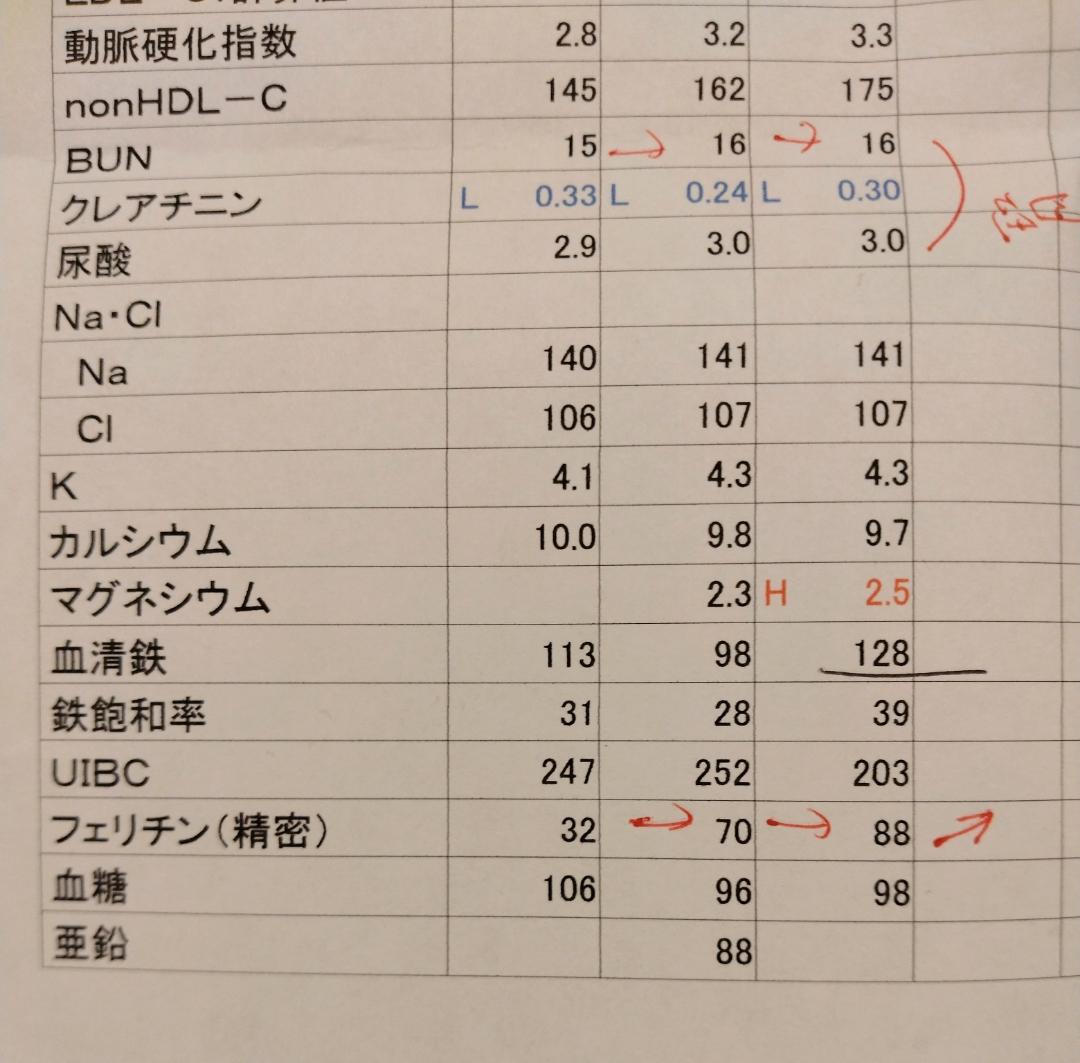 動脈硬化指数 2.8 3.2 3.3
nonHDL－C 145 162 175
BUN 15 → 16 → 16
クレアチニン L 0.33 L 0.24 L 0.30
尿酸 2.9 3.0 3.0
Na・Cl
Na 140 141 141
Cl 106 107 107
K 4.1 4.3 4.3
カルシウム 10.0 9.8 9.7
マグネシウム 2.3 H 2.5
血清鉄 113 98 128
鉄飽和率 31 28 39
UIBC 247 252 203
フェリチン(精密) 32 → 70 → 88 ↗
血糖 106 96 98
亜鉛 88